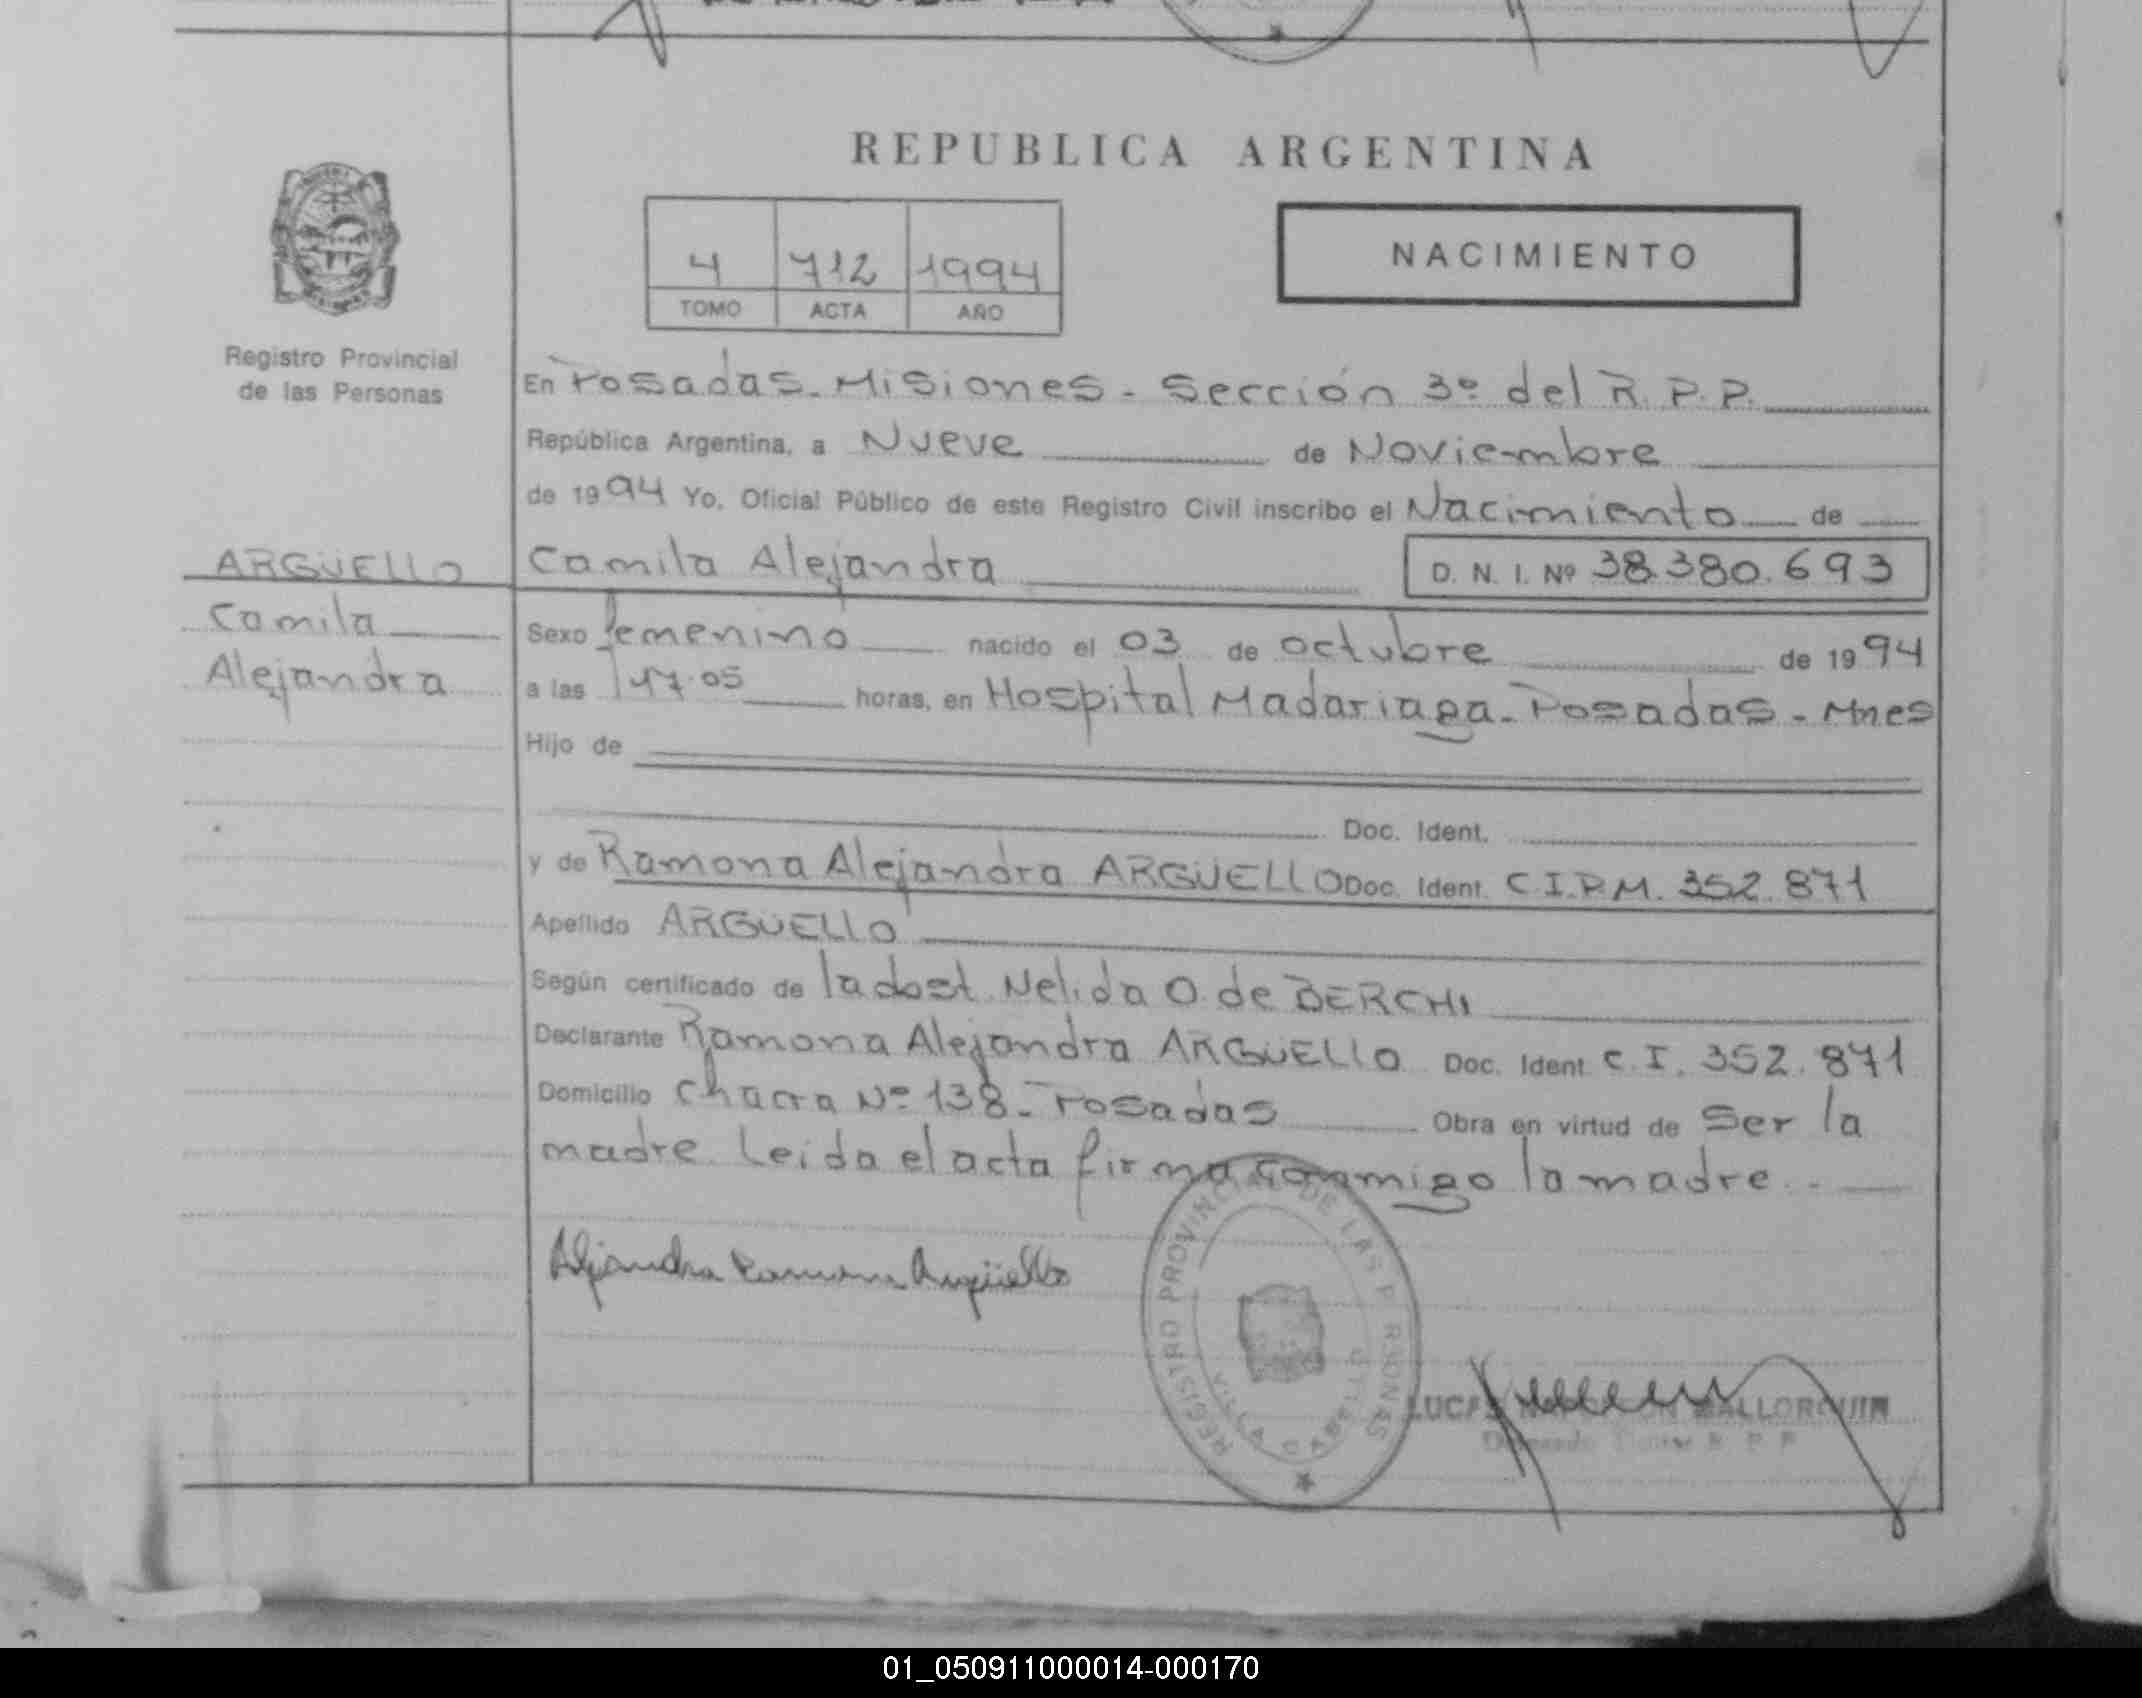 REPUBLICA ARGENTINA
4 712 1994
TOMO ACTA AÑO
NACIMIENTO
Registro Provincial
de las Personas
En Posadas - Misiones - Sección 3º del R.P.P.
República Argentina, a Nueve de Noviembre
de 1994 Yo, Oficial Público de este Registro Civil inscribo el Nacimiento de
ARGÜELLO Camila Alejandra D. N. I. Nº 38.380.693
Camila
Alejandra
Sexo femenino nacido el 03 de octubre de 1994
a las 17.05 horas, en Hospital Madariaga - Posadas - Mnes
Hijo de
Doc. Ident.
y de Ramona Alejandra ARGÜELLO Doc. Ident. C.I.P.M. 352.871
Apellido ARGÜELLO
Según certificado de la obst. Nelida O. de BERCHI
Declarante Ramona Alejandra ARGÜELLO Doc. Ident C.I. 352.871
Domicilio Chacra Nº 138 - Posadas Obra en virtud de Ser la
madre. Leida el acta firma conmigo la madre.
Alejandra Ramona Argüello
REGISTRO PROVINCIAL DE LAS P RSONAS
VILLA CABELLO
LUCAS MALLORQUIN
R P P
01_050911000014-000170